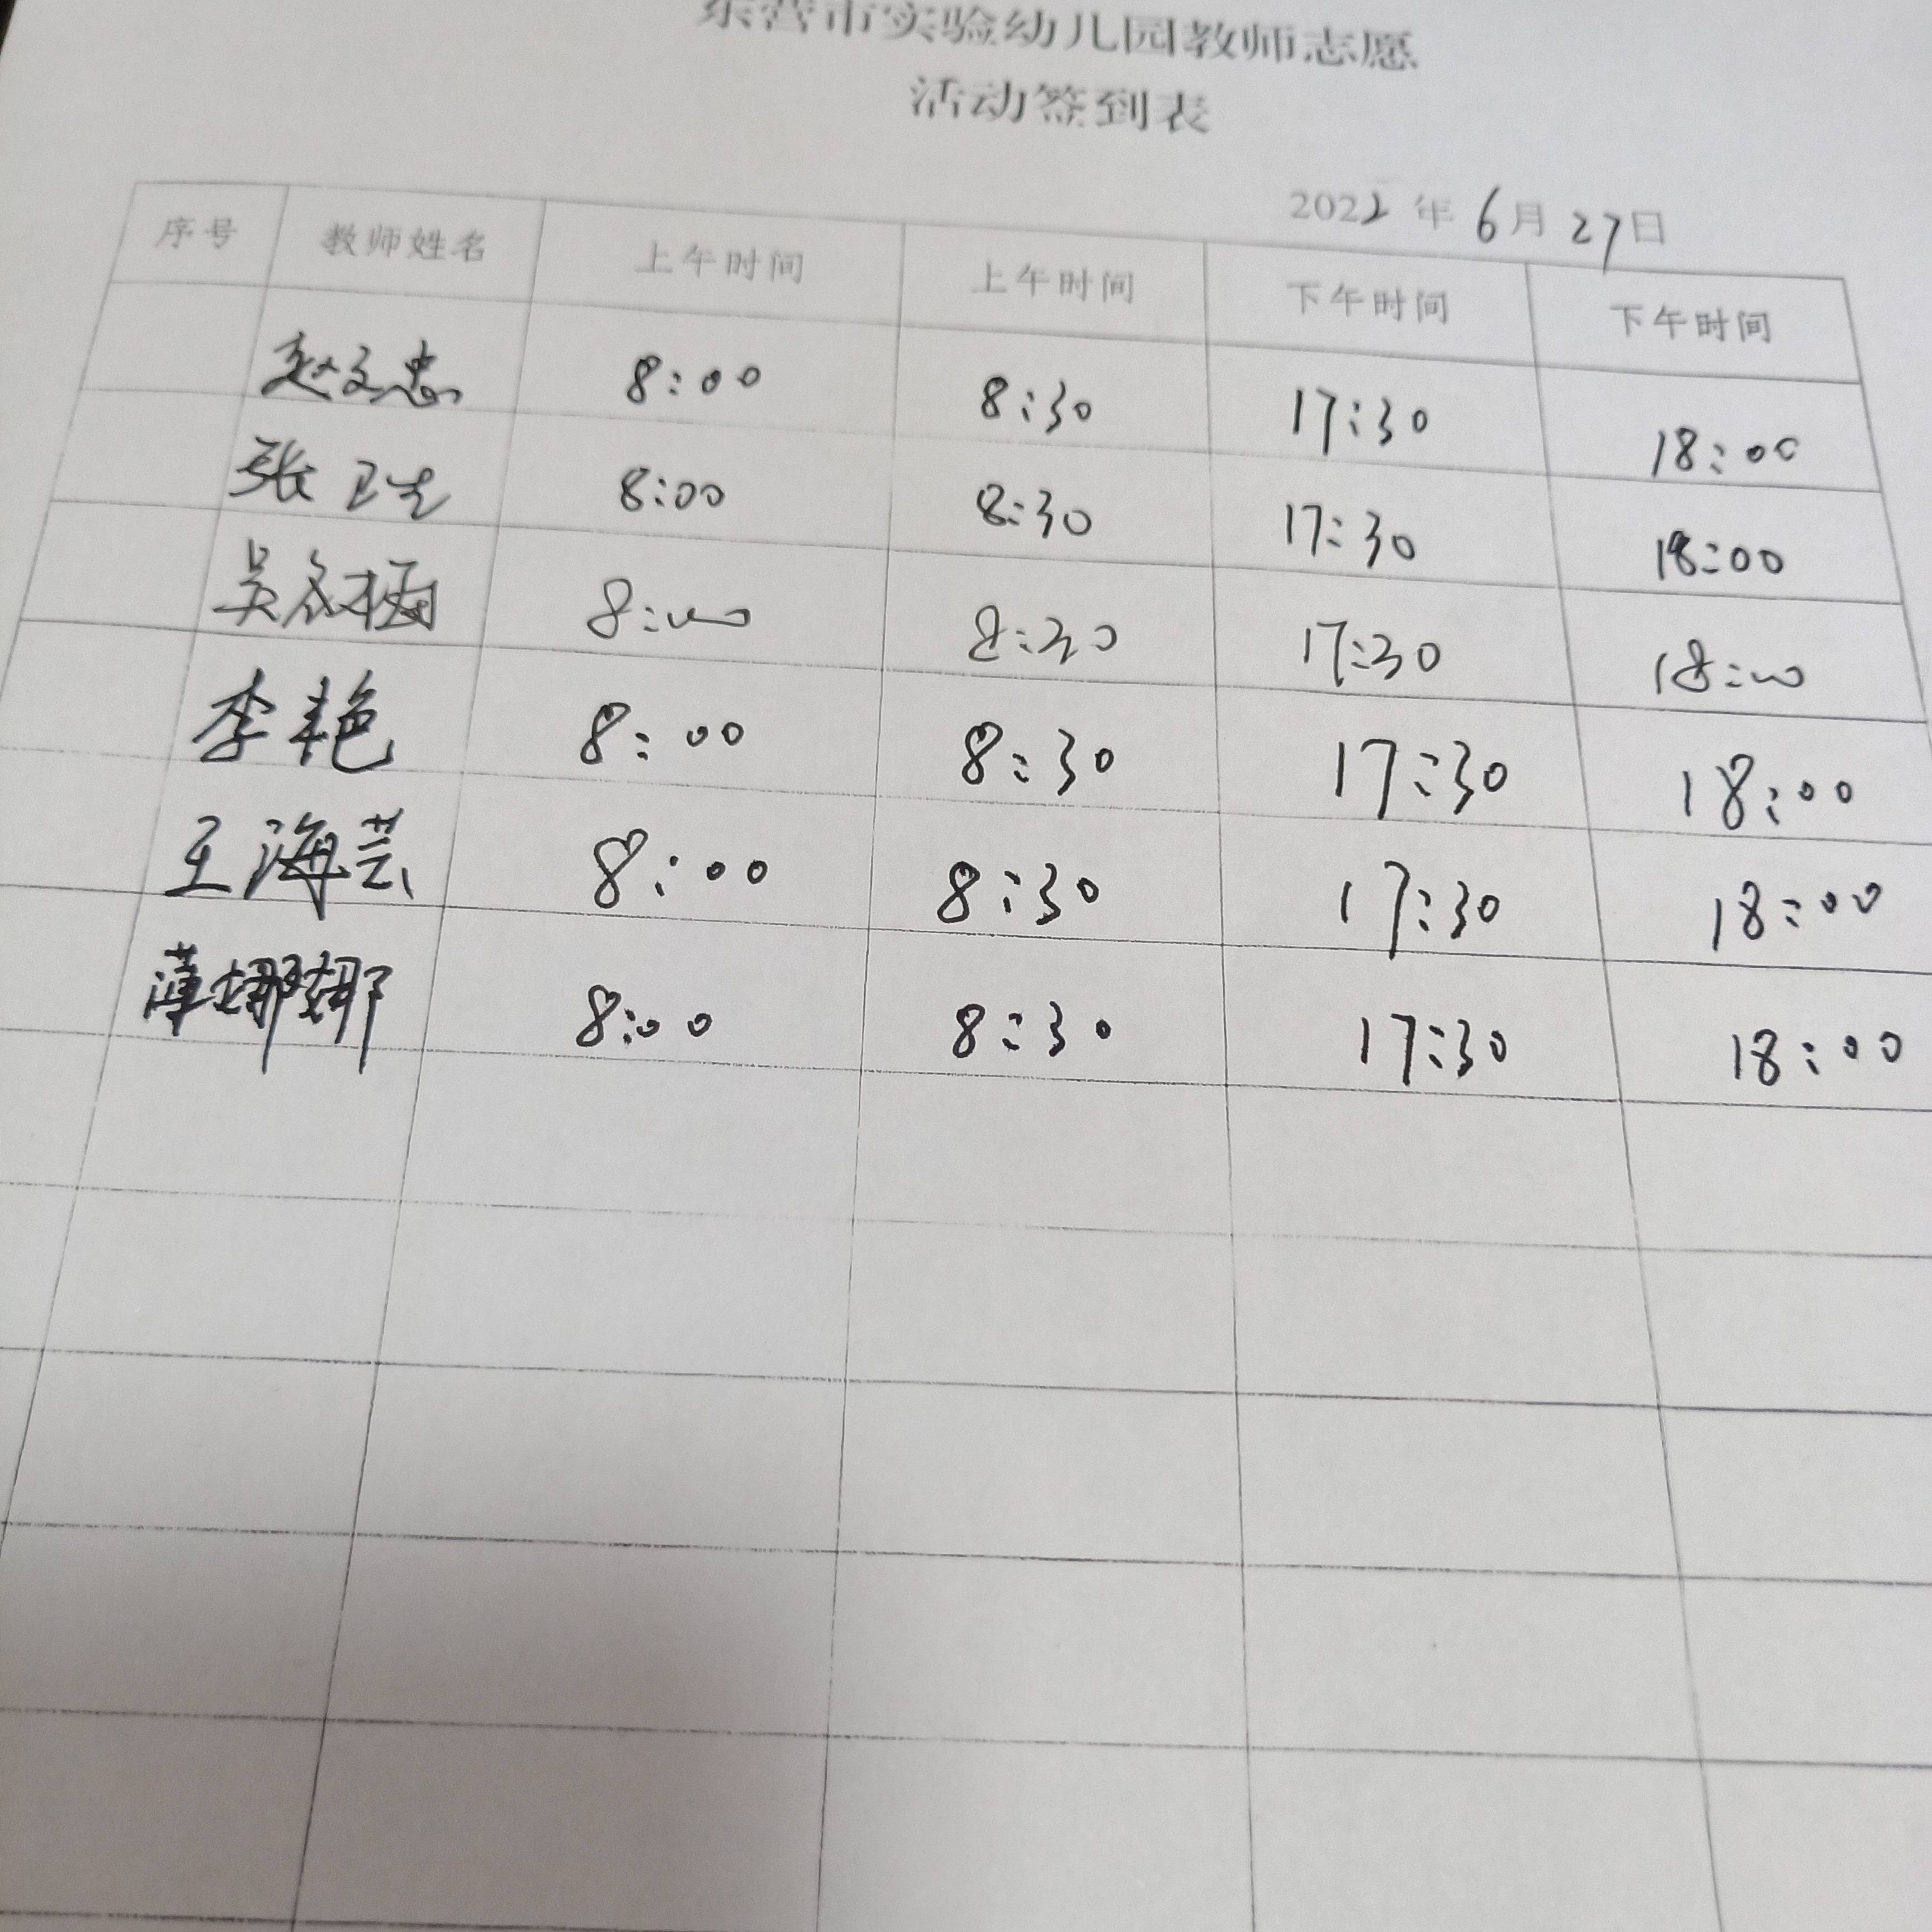 东营市实验幼儿园教师志愿
活动签到表
2022年6月27日
序号 教师姓名 上午时间 上午时间 下午时间 下午时间
赵文忠 8:00 8:30 17:30 18:00
张卫生 8:00 8:30 17:30 18:00
吴 8:00 8:30 17:30 18:00
李艳 8:00 8:30 17:30 18:00
王海芸 8:00 8:30 17:30 18:00
薄娜娜 8:00 8:30 17:30 18:00